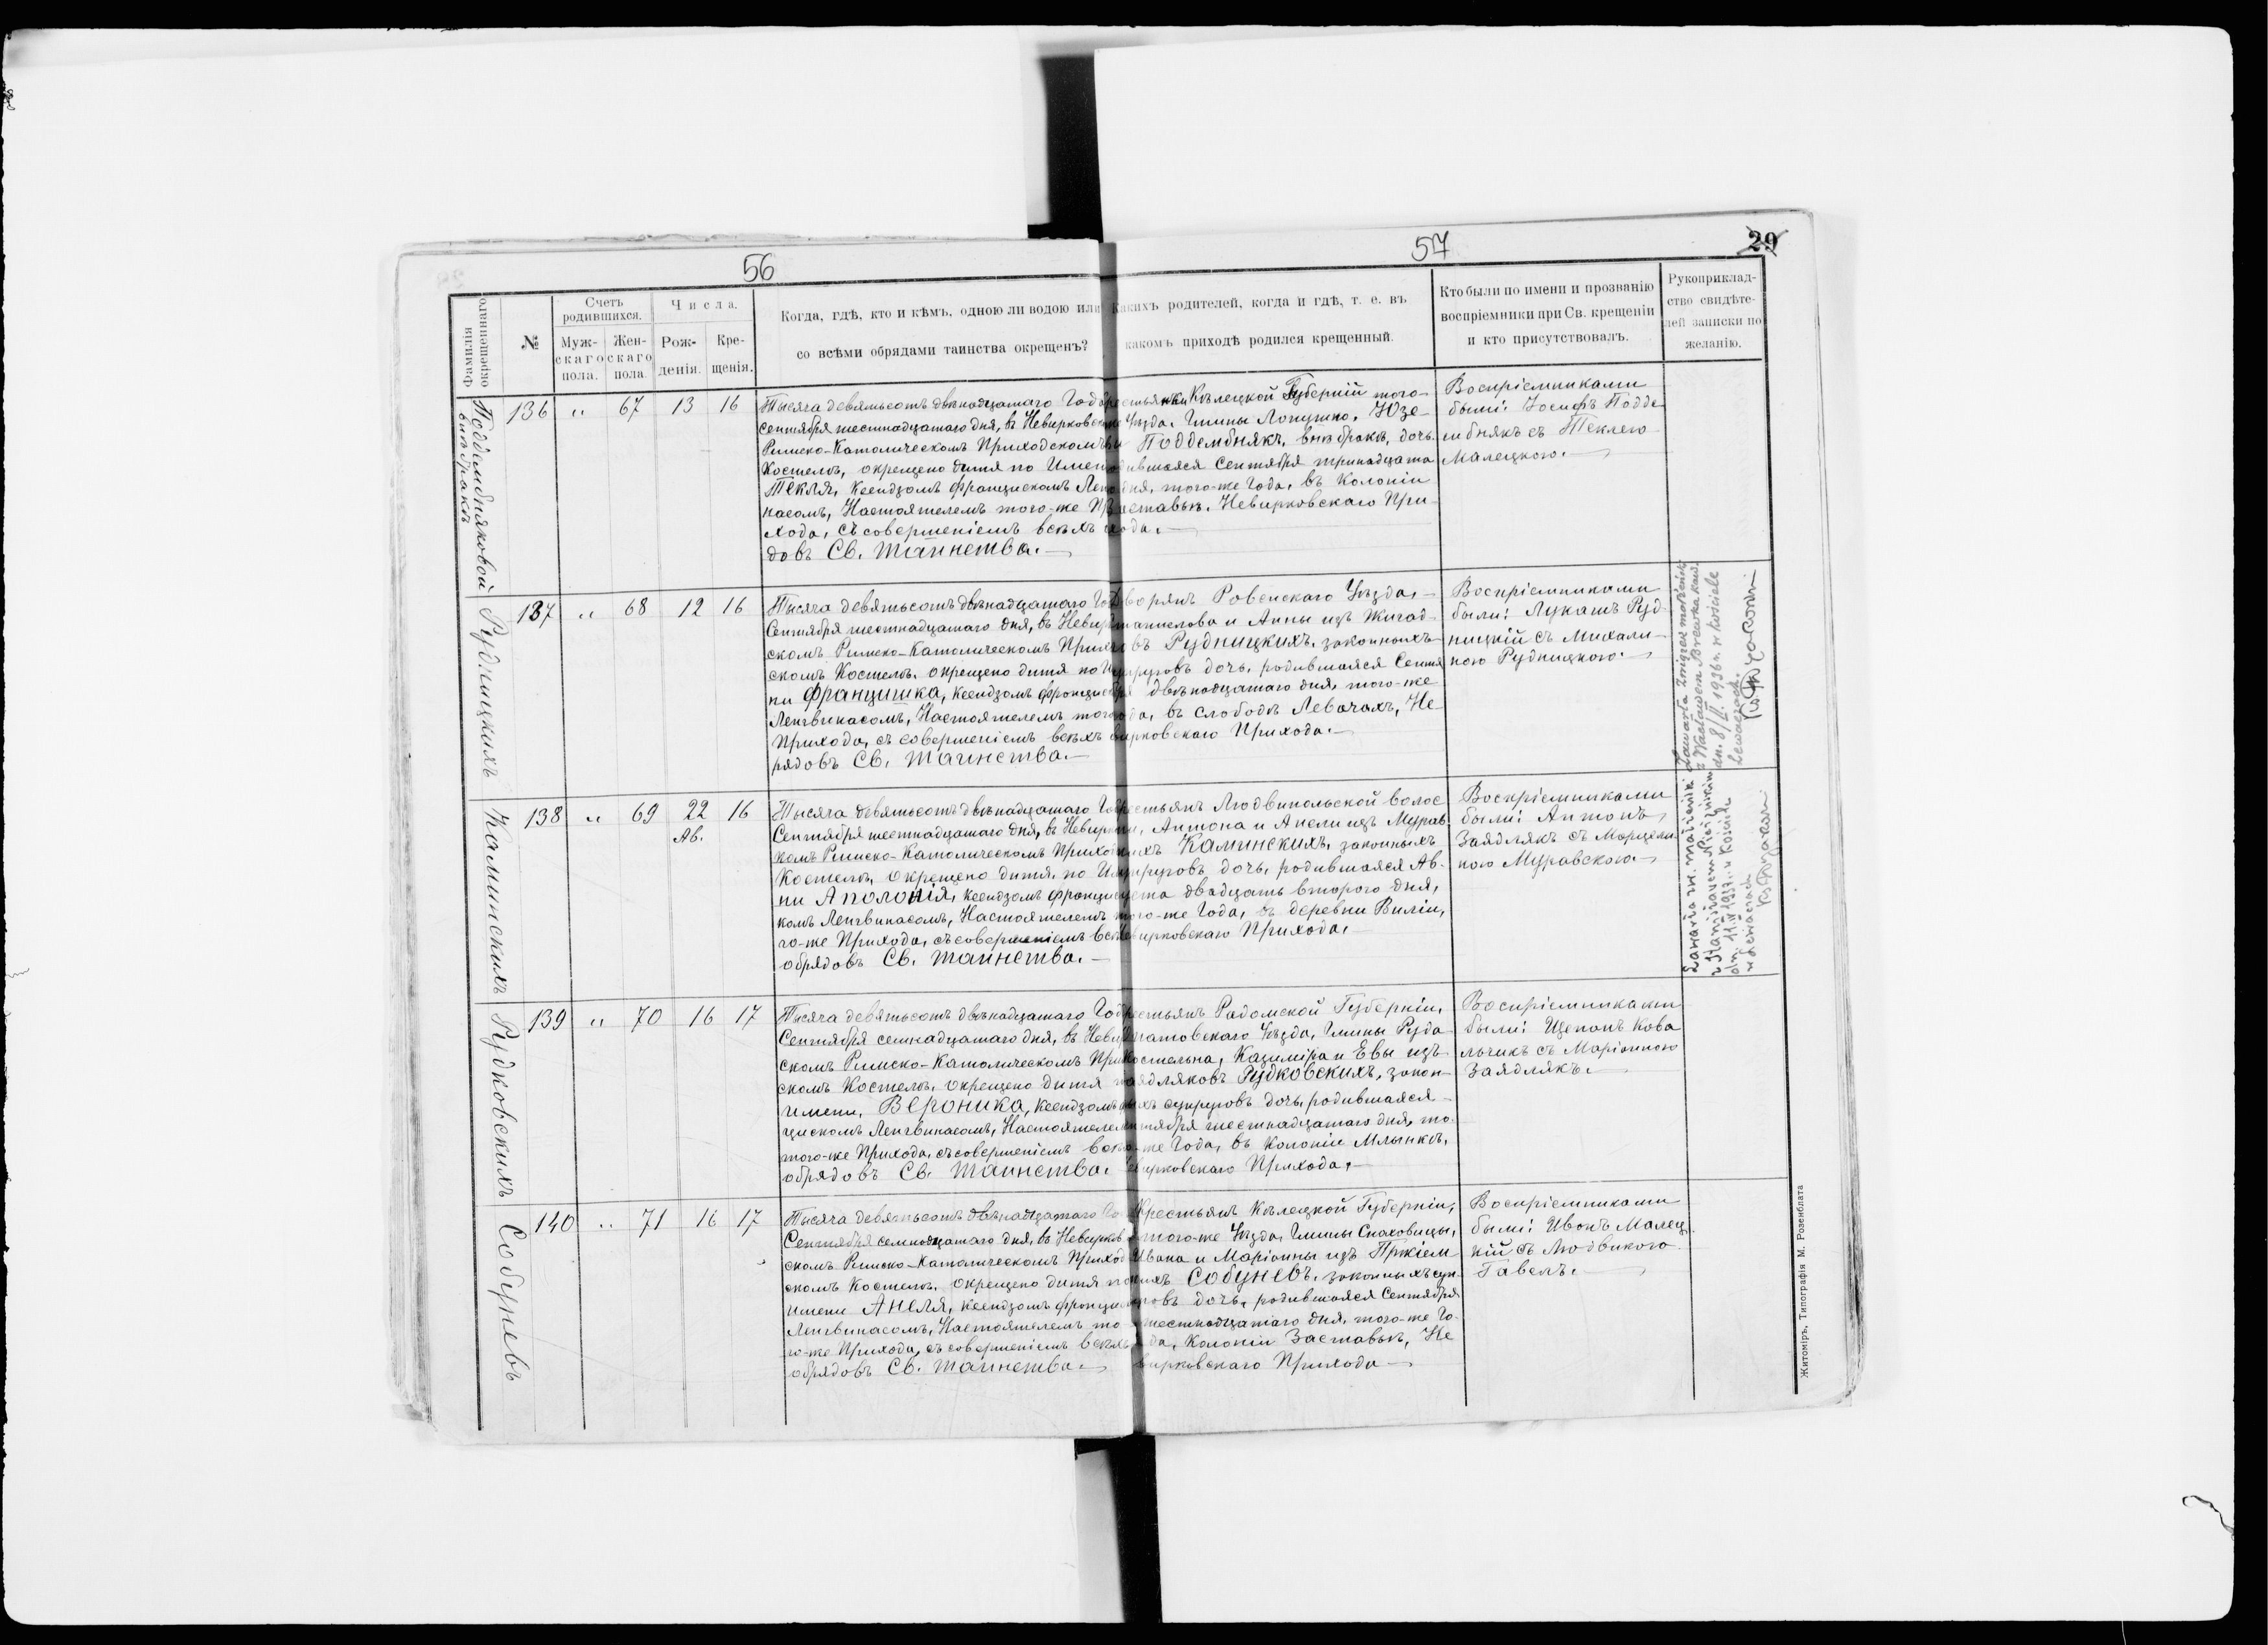 56
57
29
Фамилія окрещеннаго
№
Счетъ родившихся.
Мужскаго пола.
Женскаго пола.
Числа.
Рожденія.
Крещенія.
Когда, гдѣ, кто и кѣмъ, одною ли водою или
со всѣми обрядами таинства окрещенъ?
какихъ родителей, когда и гдѣ, т. е. въ
какомъ приходѣ родился крещенный.
Кто были по имени и прозванію
воспріемники при Св. крещеніи
и кто присутствовалъ.
Рукоприклад-
ство свидѣте-
лей записки по
желанію.
Поддембняковой
внѣ бракѣ
136 " 67 13 16
Тысяча девятьсотъ двѣнадцатаго Года
Сентября шестнадцатаго дня, въ Невирковском
Римско-Католическомъ Приходскомъ
Костелѣ, окрещено дитя по Имени
Текля, Ксендзомъ Францискомъ Ленг
насомъ, Настоятелемъ того-же При
хода, съ совершеніемъ всѣхъ
довъ Св. Таинства.
крестьянки Кѣлецкой Губерніи того-
Уѣзда, Гмины Лопушно, Юзе-
Поддембнякъ, внѣ бракѣ, дочь
родившаяся Сентября тринадцата
дня, того-же Года, въ Колоніи
Заставьѣ, Невирковскаго При-
хода.
Воспріемниками
были: Іосифъ Подде
мбнякъ съ Теклею
Малецкою.
Рудницкихъ
137 " 68 12 16
Тысяча девятьсотъ двѣнадцатаго Года
Сентября шестнадцатаго дня, въ Невирков
скомъ Римско-Католическомъ Приход
скомъ Костелѣ, окрещено дитя по И
ни Францишка, Ксендзомъ Францис
Ленгвинасомъ, Настоятелемъ того
Прихода, съ совершеніемъ всѣхъ об
рядовъ Св. Таинства.
Дворянъ Ровенскаго Уѣзда,
и Анны изъ Жигад-
Рудницкихъ, законныхъ
супруговъ дочь, родившаяся Сентя
бря двѣнадцатаго дня, того-же
Года, въ Слободѣ Левачахъ, Не
вирковскаго Прихода.
Воспріемниками
были: Лукашъ Руд-
ницкій съ Михали-
ною Рудницкою.
Zawarła związek małżeński
z Wacławem
dn. 8/II. 1936 r. w kościele
Lewaczach.
Каминскихъ
138 " 69 22 Ав. 16
Тысяча девятьсотъ двѣнадцатаго Года
Сентября шестнадцатаго дня, въ Невирковс
комъ Римско-Католическомъ Приход
Костелѣ, окрещено дитя, по Име
ни Аполонія, Ксендзомъ Францис
комъ Ленгвинасомъ, Настоятелемъ то
го-же Прихода, съ совершеніемъ всѣхъ
обрядовъ Св. Таинства.
крестьянъ Людвипольской волос
ти, Антона и Анели изъ Мурав
скихъ Каминскихъ, законныхъ
супруговъ дочь, родившаяся Ав-
густа двадцать второго дня,
того-же Года, въ деревни Виліи,
Невирковскаго Прихода.
Воспріемниками
были: Антонъ
Заядлякъ съ Марцели-
ною Муравскою.
Zawarła zw. małżeński
z Stanisławem
dn. 11.IV 1937 r. w Kościele
w Lewaczach
Рудковскихъ
139 " 70 16 17
Тысяча девятьсотъ двѣнадцатаго Года
Сентября семнадцатаго дня, въ Невирков
скомъ Римско-Католическомъ Приход
скомъ Костелѣ, окрещено дитя по
Имени, Вероника, Ксендзомъ Фран
цискомъ Ленгвинасомъ, Настоятелемъ
того-же Прихода, съ совершеніемъ всѣхъ
обрядовъ Св. Таинства.
крестьянъ Радомской Губерніи,
Опатовскаго Уѣзда, Гмины Руда
Костельна, Казиміра и Евы изъ
Заядляковъ Рудковскихъ, закон-
ныхъ супруговъ дочь, родившаяся
Сентября шестнадцатаго дня, то-
го-же Года, въ Колоніи Млынкѣ,
Невирковскаго Прихода.
Воспріемниками
были: Щепанъ Кова
льчикъ съ Маріанною
Заядлякъ.
Собуневъ
140 " 71 16 17
Тысяча девятьсотъ двѣнадцатаго Го
Сентября семнадцатаго дня, въ Невирков
скомъ Римско-Католическомъ Приход
скомъ Костелѣ, окрещено дитя по
Имени Анеля, Ксендзомъ Францис
Ленгвинасомъ, Настоятелемъ то
го-же Прихода, съ совершеніемъ всѣхъ
обрядовъ Св. Таинства.
Крестьянъ Кѣлецкой Губерніи,
того-же Уѣзда, Гмины Снаховицы,
Ивана и Маріанны изъ
Собуневъ, законныхъ суп-
руговъ дочь, родившаяся Сентября
шестнадцатаго дня, того-же Го-
да, Колоніи Заставьѣ, Не
вирковскаго Прихода
Воспріемниками
были: Иванъ Малец
кій съ Людвикою
Гавелъ.
Житоміръ, Типографія М. Розенблата